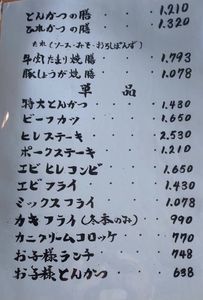 とんかつの膳・・・1.210
ひれかつの膳・・・1.320
たれ(ソース・みそ・おろしぽんず)
牛肉たまり焼膳・・1.793
豚しょうが焼膳・・1.078
単品
特大とんかつ・・1.430
ビーフカツ・・・1.650
ヒレステーキ・・2.530
ポークステーキ・・1.210
エビヒレコンビ・・1.650
エビフライ・・1.430
ミックスフライ・・1.078
カキフライ(冬季のみ)990
カニクリームコロッケ・770
お子様ランチ・・748
お子様とんかつ・・638